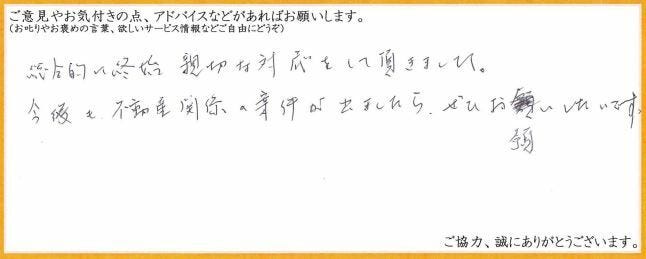 ご意見やお気付きの点、アドバイスなどがあればお願いします。
(お叱りやお褒めの言葉、欲しいサービス情報などご自由にどうぞ)
総合的に終始 親切な対応をして頂きました。
今後も 不動産関係の案件が出ましたら、ぜひお願いしたいです。
願
ご協力、誠にありがとうございます。